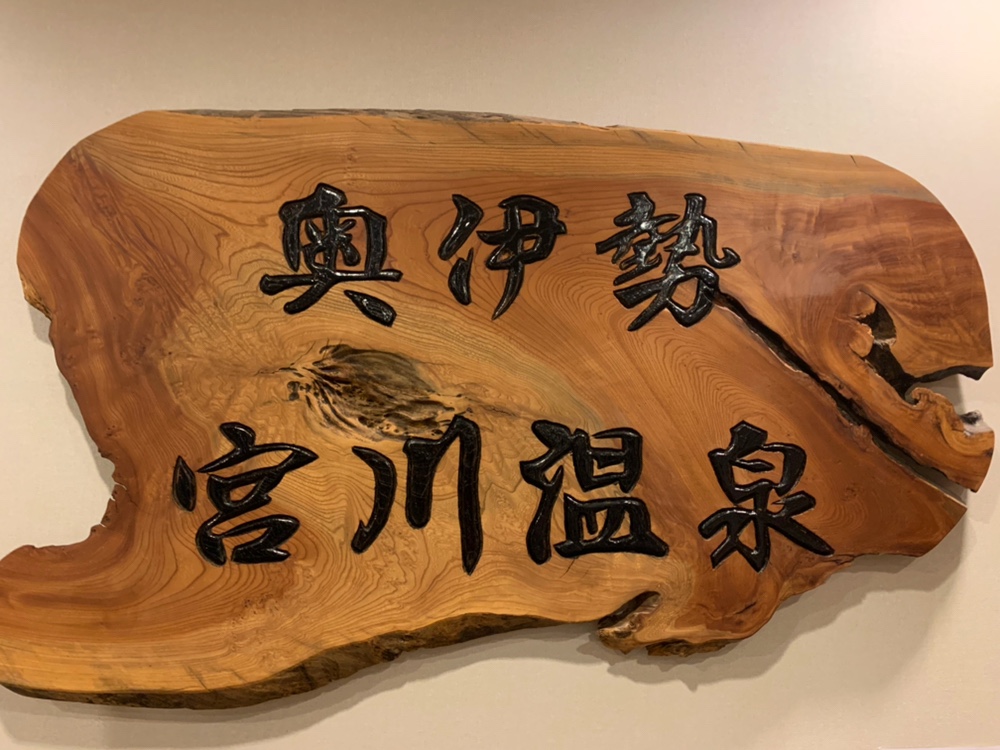 奥伊勢
宮川温泉